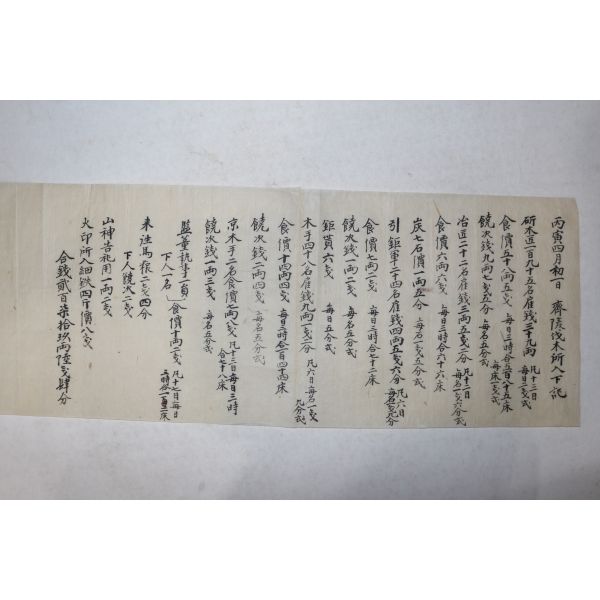 丙寅四月初一日 齊陵伐木所入下記
斫木匠一百九十五名雇錢三十九兩 凡十三日 每日二戔式
食價五十八兩五戔 每日三時合五百八十五床 每床一戔式
饒次錢九兩七戔五分 每名五分式
冶匠二十二名雇錢三兩五戔二分 凡十一日 每名一戔六分式
食價六兩六戔 每日三時合六十六床
炭七石價一兩五分 每石一戔五分式
引鉅軍二十四名雇錢四兩五戔六分 凡六日 每名一戔九分
食價七兩二戔 每日三時合七十二床
饒次錢一兩二戔 每名五分式
鉅貰六戔 每日五分式
木手四十八名雇錢九兩一戔二分 凡六日 每名一戔九分式
食價十四兩四戔 每日三時合一百四十四床
饒次錢二兩四戔 每名五分式
京木手二名食價七兩八戔 凡十三日每日三時 合七十八床
饒次錢一兩三戔 每名五分式
監董執事一員 下人一名 食價十兩二戔 凡十七日每日三時合一百二床
來往馬粮二戔四分
下人饒次二戔
山神告祀用一兩二戔
火印所入細鐵四斤價八戔
合錢貳百柒拾玖兩陸戔肆分